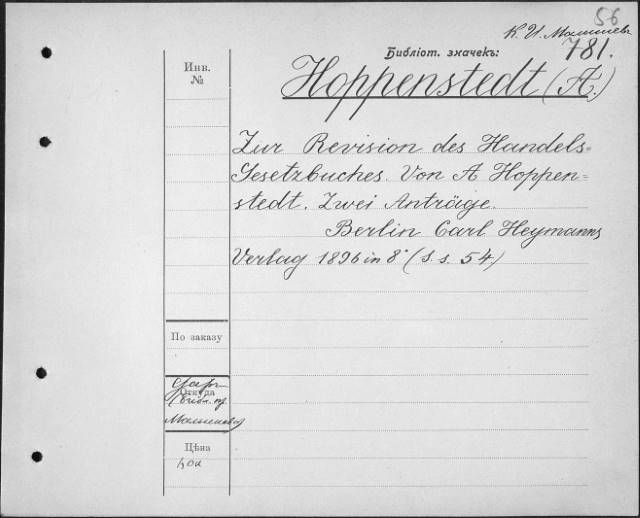 56
К. И. Малышев
Библіот. значекъ: 781.
Инв.
№
Hoppenstedt (A.)
Zur Revision des Handels=
Gesetzbuches. Von A. Hoppen=
stedt. Zwei Anträge.
Berlin Carl Heymanns
Verlag 1896 in 8° (s.s. 54)
По заказу
Откуда
Малышева
Цѣна